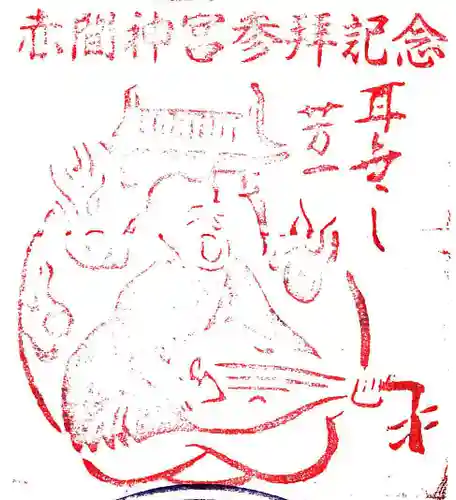 赤間神宮参拝記念
耳無し
芳一